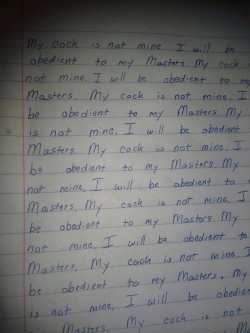 My cock is not mine. I will be
obedient to my Masters. My cock
not mine. I will be obedient to my
Masters. My cock is not mine. I
be obedient to my Masters. My
is not mine. I will be obedient
Masters. My cock is not mine. I
be obedient to my Masters. My
not mine. I will be obedient to
Masters. My cock is not mine. I
be obedient to my Masters. My
not mine. I will be obedient to
Masters. My cock is not mine. I
be obedient to my Masters. My
is not mine. I will be obedien
Masters. My cock is not